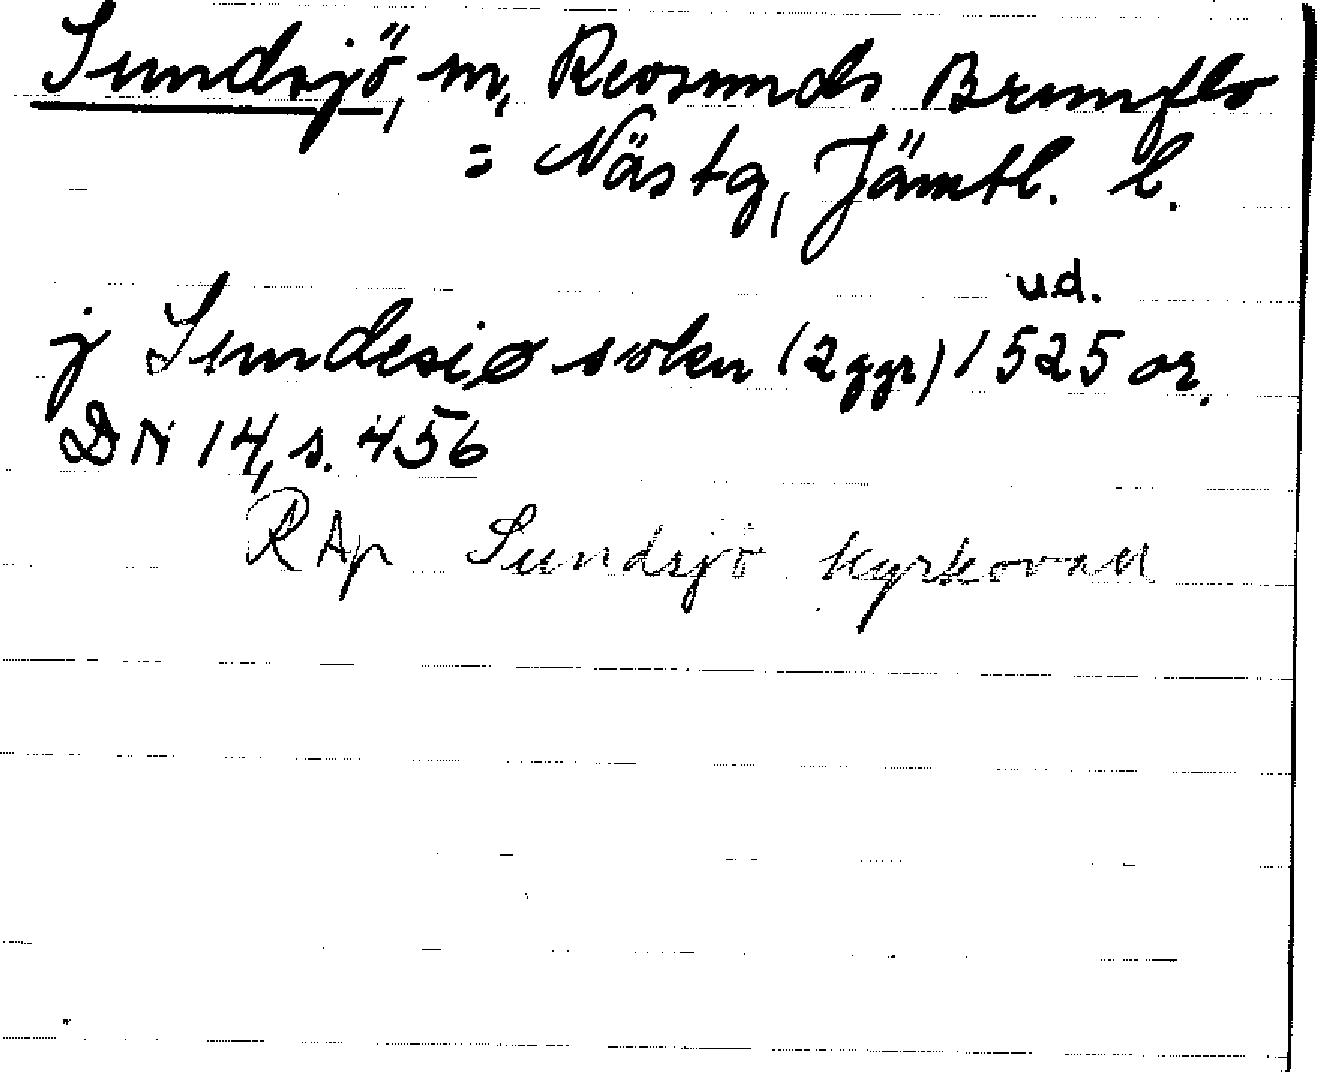 Sundsjö, sn, Revsunds Brunflo
= Näs tg, Jämtl. l.
u.d.
j Sundesiø sokn (2 ggr) 1525 or.
DN 14, s. 456
RAp Sundsjö kyrkovall